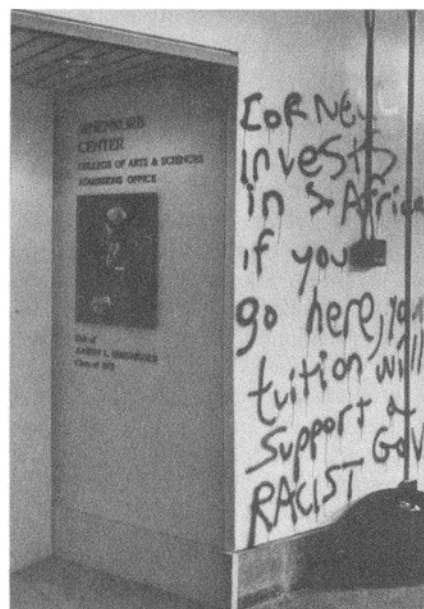 CENTER
COLLEGE OF ARTS & SCIENCES
ADMISSIONS OFFICE
Gift of
Class of
CORNEL
invests
in S Africa
if you
go here, you
tuition will
support a
RACIST GOV